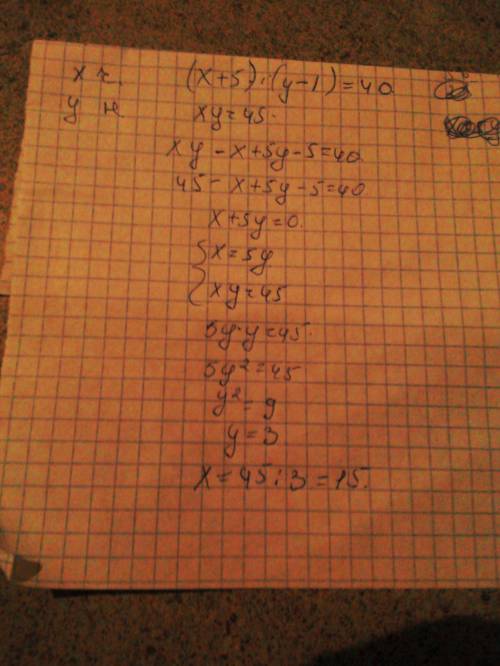 x ч. (x+5)·(y-1)=40
y н xy=45.
xy-x+5y-5=40
45-x+5y-5=40
x+5y=0.
{x=5y
xy=45
5y·y=45.
5y²=45
y²=9
y=3
x=45:3=15.